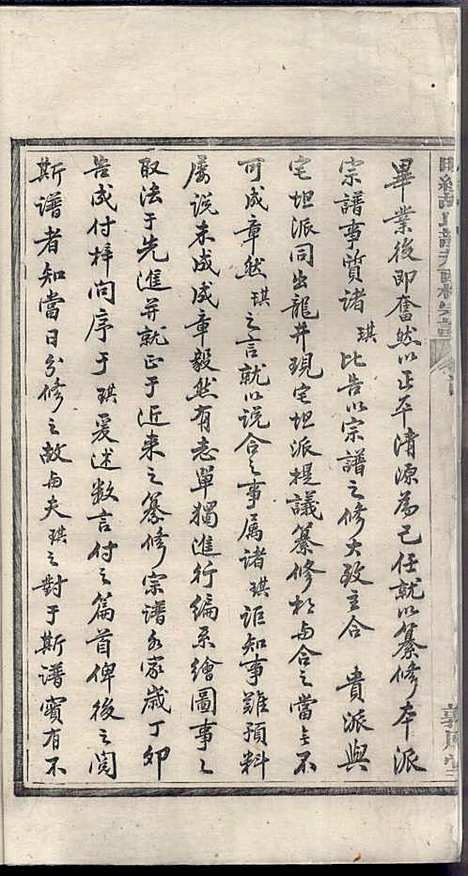 畢業後即奮然以正本清源為己任就以纂修本派
宗譜事質諸琪比告以宗譜之修大致主合貴派與
宅坦派同出龍井現宅坦派提議纂修相與合之當無不
可成章然琪之言就以說合之事属諸琪詎知事難預料
屡說未成成章毅然有志單獨進行編系繪圖事事
取法于先進并就正于近来之纂修宗譜各家歲丁卯
告成付梓问序于琪爰述数言付之篇首俾後之閲
斯譜者知當日分修之故与夫琪之對于斯譜實有不